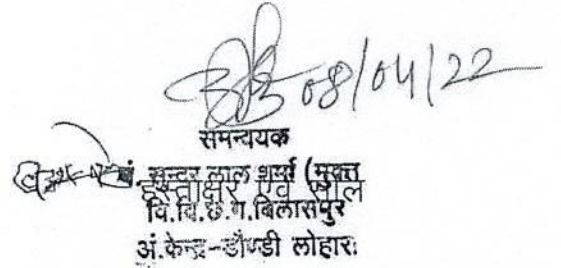 08/04/22
समन्वयक
पं. सुन्दर लाल शर्मा (मुक्त
हस्ताक्षर एवं सील
वि.वि.छ.ग.बिलासपुर
अ.केन्द्र-डौण्डी लोहारा